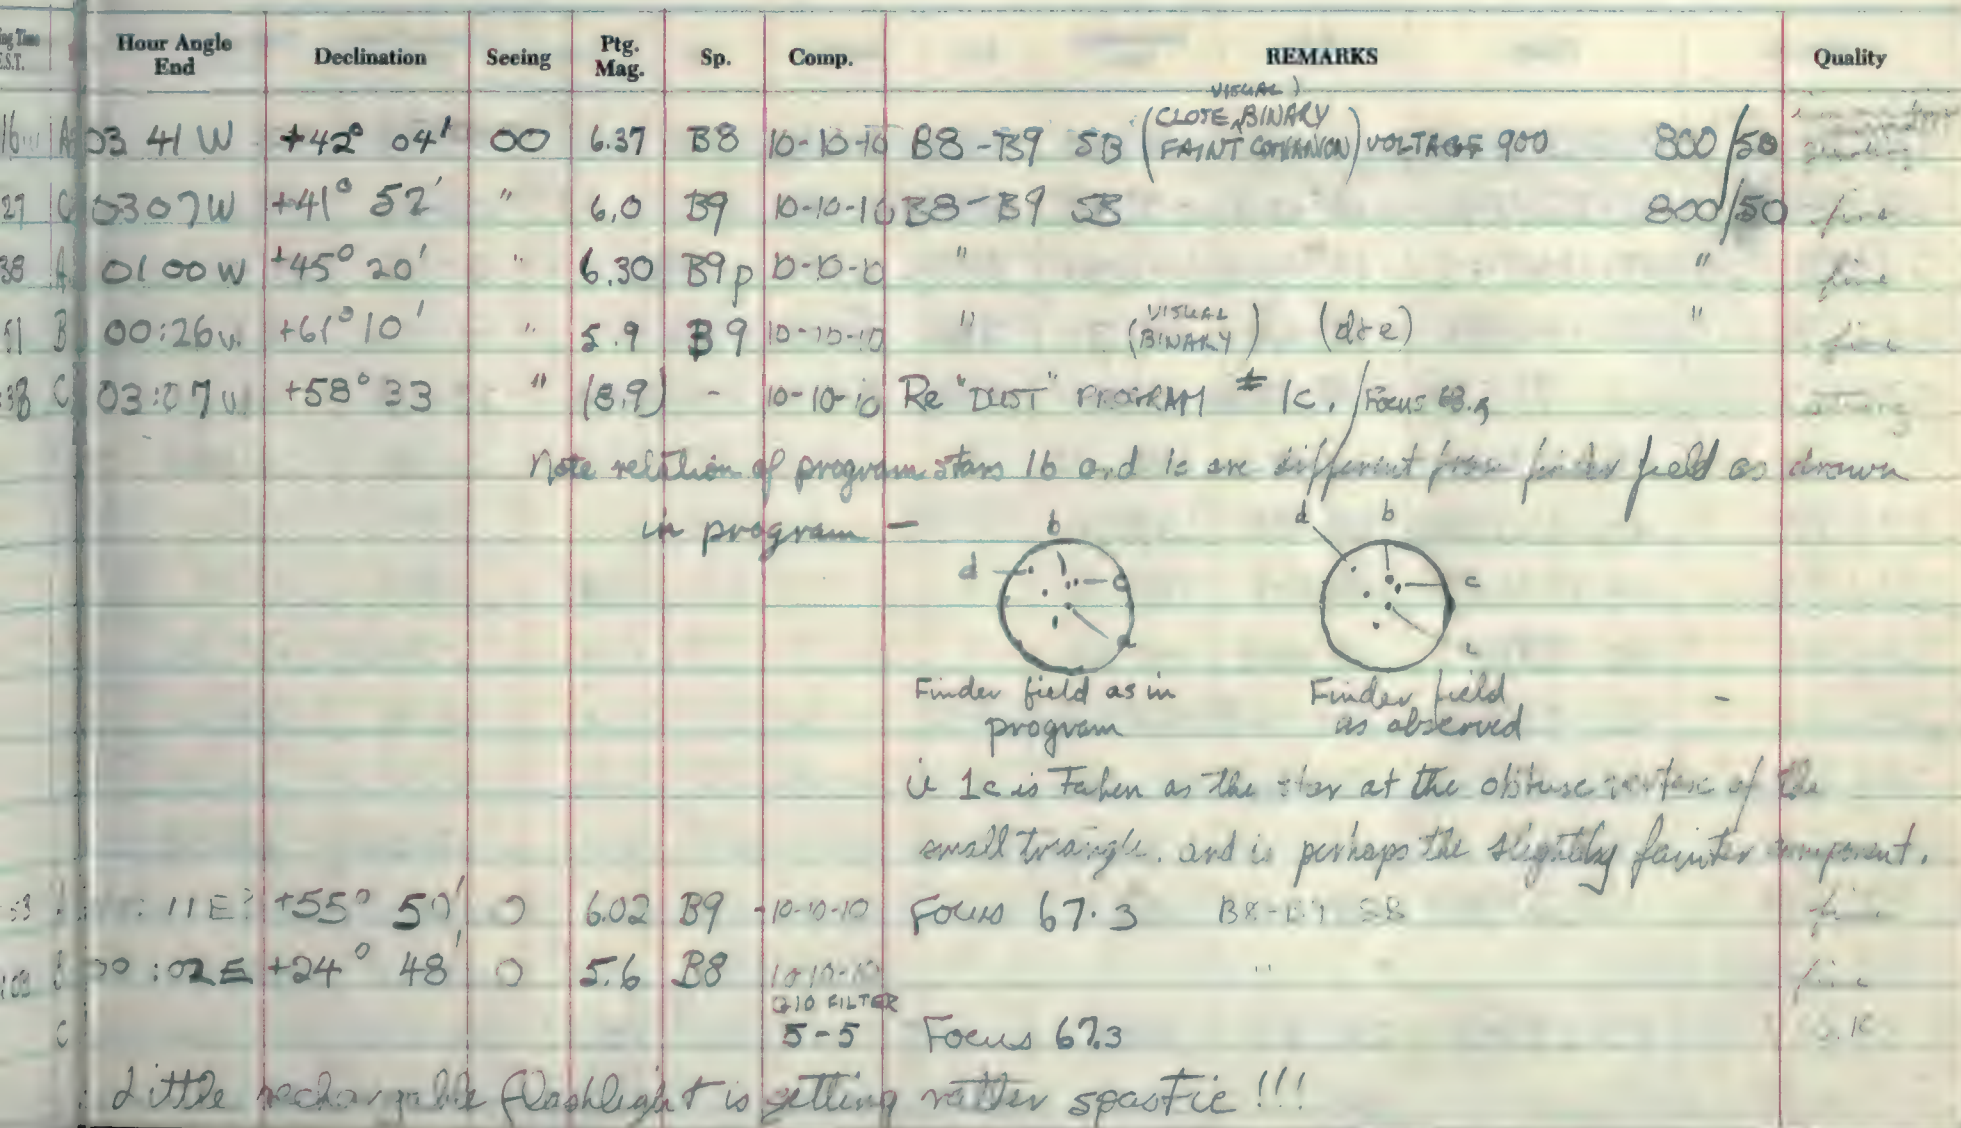 Hour Angle End Declination Seeing Ptg. Mag. Sp. Comp. REMARKS Quality
E.S.T.
VISUAL
03 41 W +42° 04' 00 6.37 B8 10-10-10 B8-B9 SB (CLOSE BINARY FAINT COMPANION) VOLTAGE 900 800/50
27 C 03 07 W +41° 52' " 6.0 B9 10-10-10 B8-B9 SB 800/50 fine
38 A 01 00 W +45° 20' " 6.30 B9p 10-10-10 " " fine
51 B 00:26 W +61° 10' " 5.9 B9 10-10-10 " (VISUAL BINARY) (d+e) " fine
38 C 03:07 W +58° 33 " (8.9) - 10-10-10 Re "DUST" PROGRAM # 1c. / Focus 68.5 strong
Note relation of program stars 1b and 1c are different from finder field as drawn
in program —
d b c a
d b c
Finder field as in program
Finder field as observed
ie 1c is taken as the star at the obtuse vertex of the
small triangle, and is perhaps the slightly fainter component.
53 : 11 E? +55° 50' 0 6.02 B9 10-10-10 Focus 67.3 B8-B9 SB fine
00:02 E +24° 48' 0 5.6 B8 10-10-10 " fine
FILTER
C 5-5 Focus 67.3
Little rechargable flashlight is getting rather spastic!!!